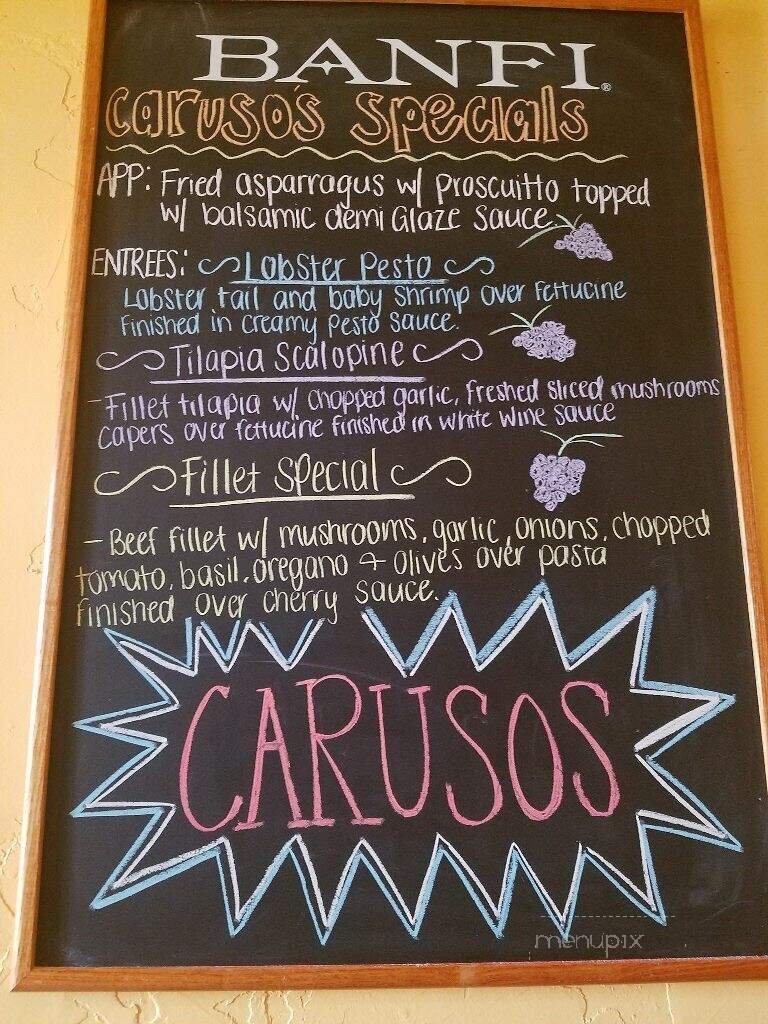 BANFI®
Caruso's Specials
APP: Fried asparragus w/ proscuitto topped
w/ balsamic demi Glaze Sauce
ENTREES: Lobster Pesto
Lobster tail and baby Shrimp over Fettucine
Finished in creamy pesto sauce.
Tilapia Scalopine
- Fillet tilapia w/ chopped garlic, freshed sliced mushrooms
capers over fettucine finished in white wine sauce
Fillet Special
- Beef fillet w/ mushrooms, garlic, onions, chopped
tomato, basil, oregano + olives over pasta
finished over cherry sauce.
CARUSOS
menupix